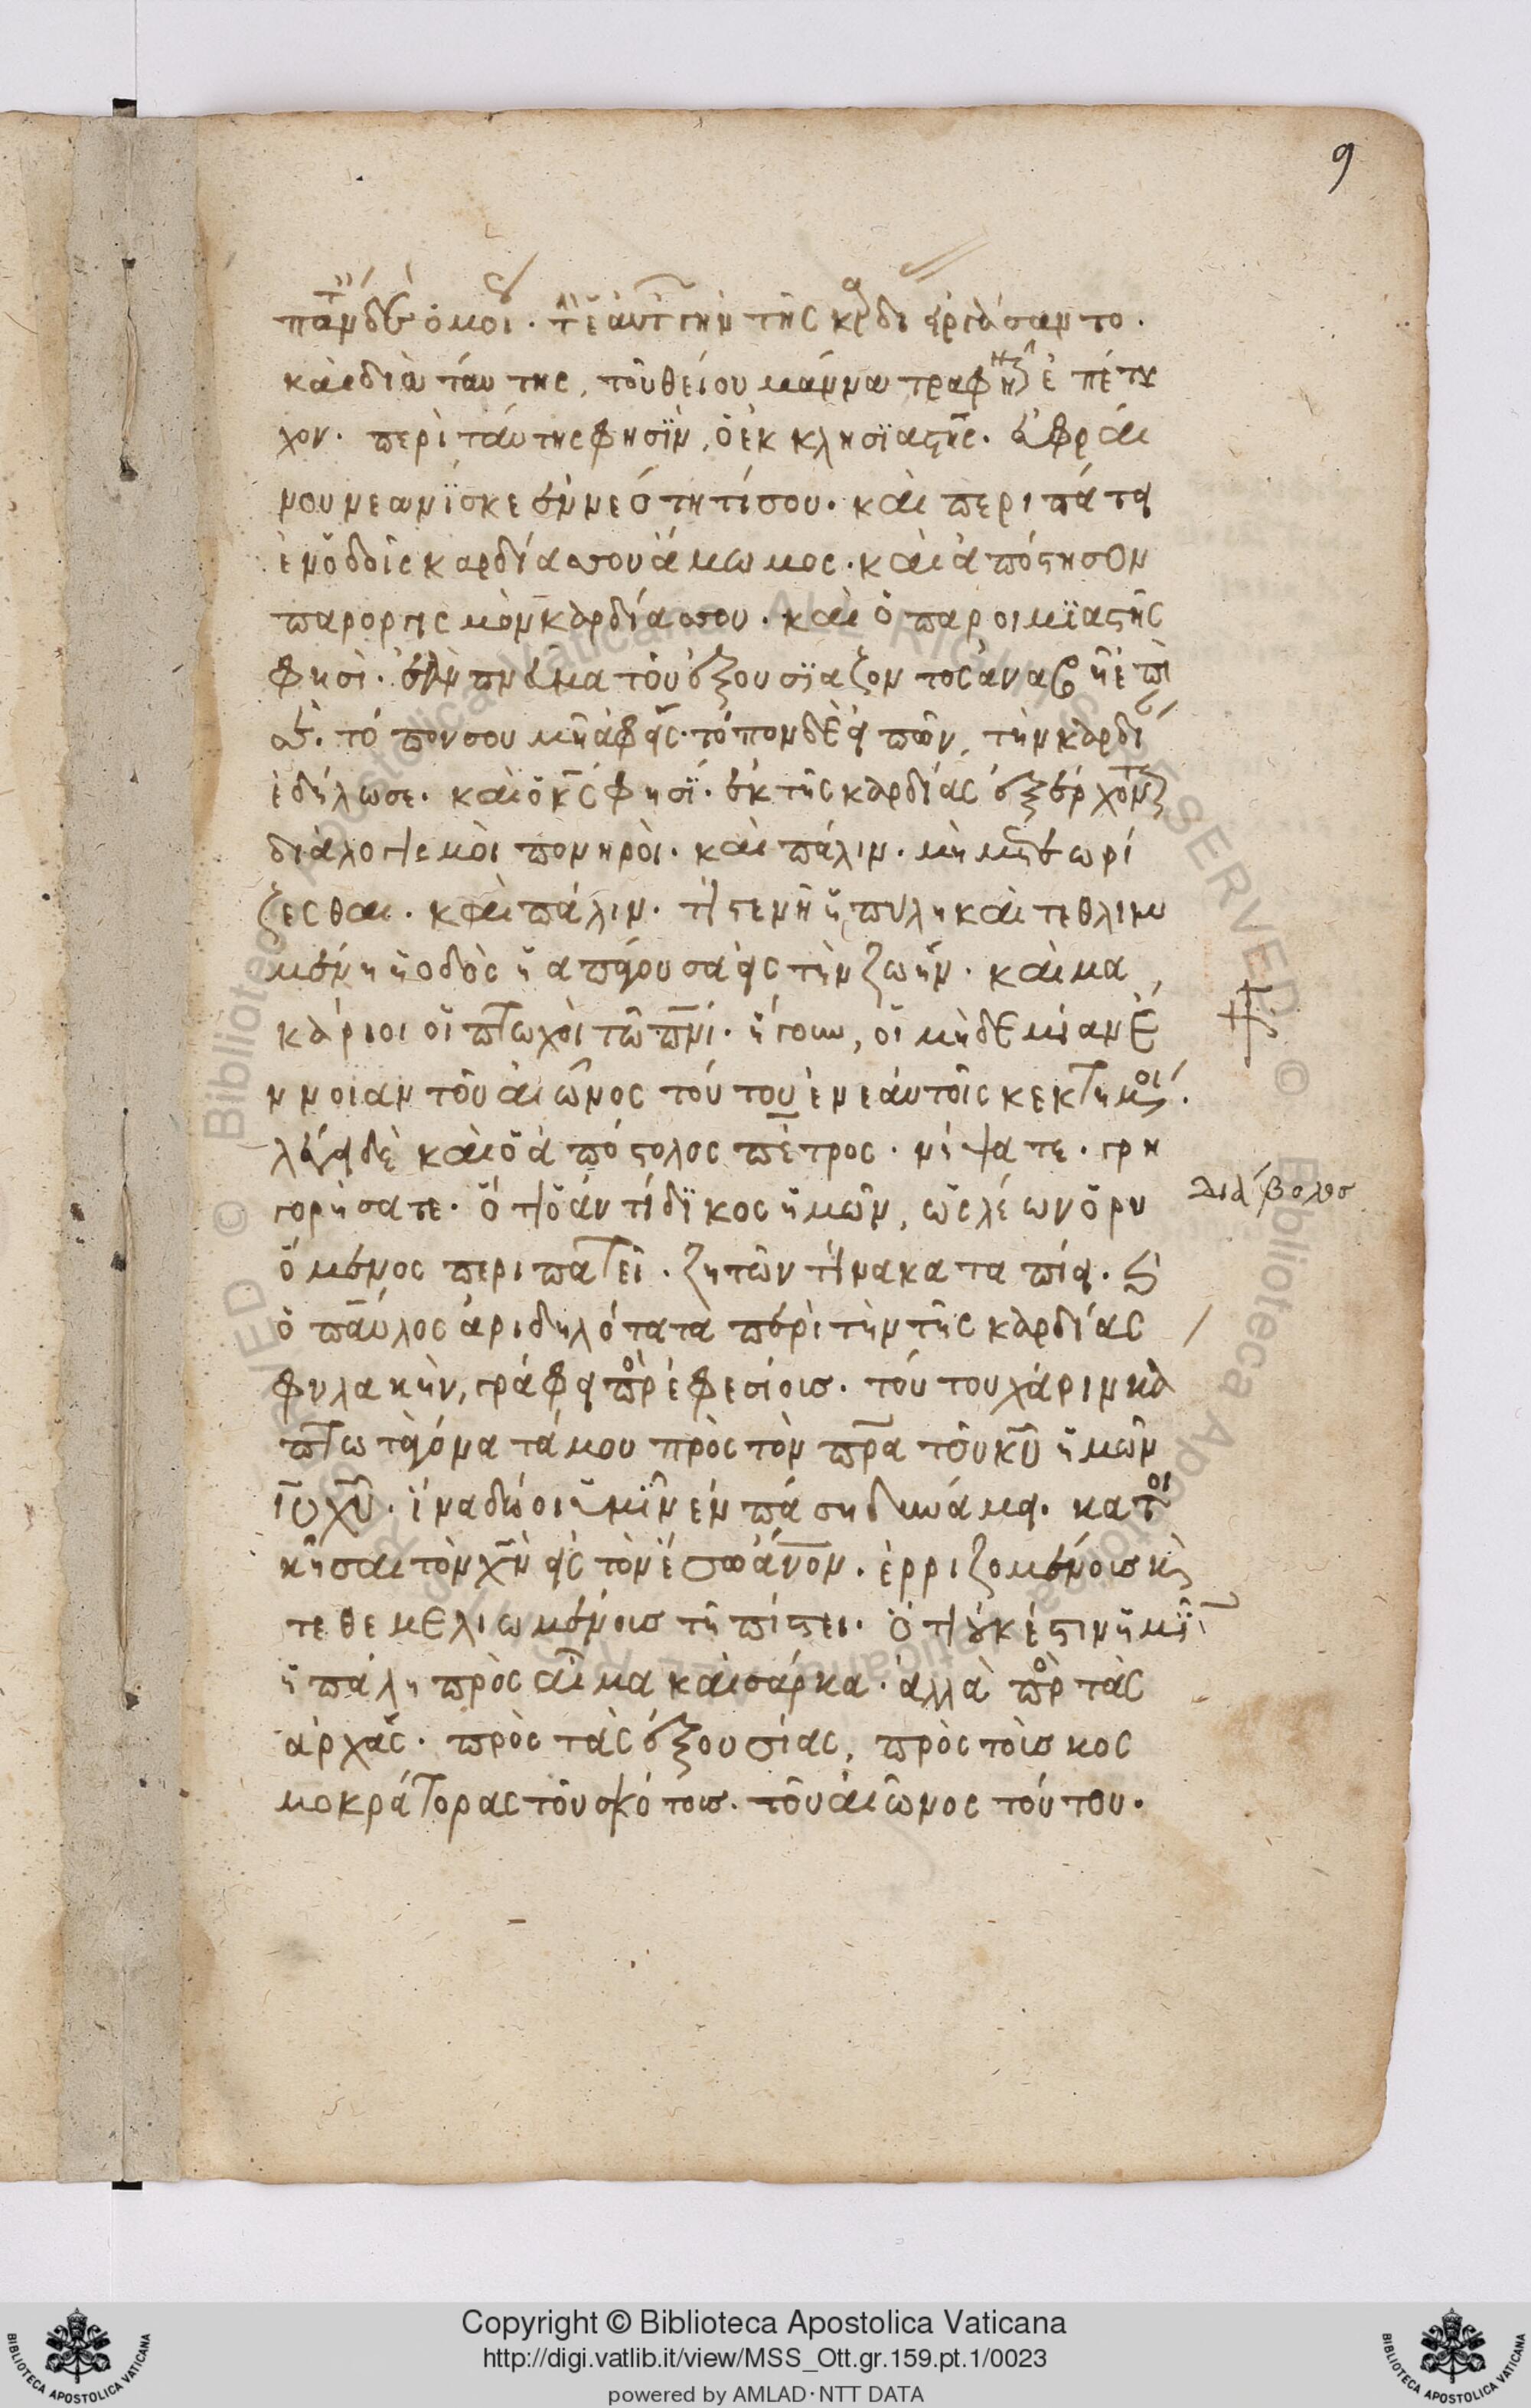 9
πάντες ὅμοι. τὴν ἐν αὐτῇ τῆς καρδι ἐργάσαντο.
καὶ διὰ ταύτης, τοῦ θείου μάννα τραφῆναι ἐπέτυ
χον. περὶ ταύτης φησὶν, ὁ ἐκκλησϊαστὴς. εὐφραί
νου νεανΐσκε ἐν νεότητί σου. καὶ περιπάτει
ἐν ὁδοῖς καρδίας σου ἄμωμος. καὶ ἀπόστησον
παροργισμὸν καρδίας σου. καὶ ὁ παροιμϊαστὴς
φησὶ. ἐὰν πνεῦμα τοῦ ἐξουσϊάζοντος ἀναβῇ ἐπὶ
σέ. τόπον σου μὴ ἀφῇς. τόπον δὲ εἰπὼν, τὴν καρδί
ἐδήλωσε. καὶ ὁ κς φησϊ. ἐκ τῆς καρδίας ἐξέρχονται
διαλογισμοὶ πονηροὶ. καὶ πάλιν. μὴ μετεωρί
ζεσθαι. καὶ πάλιν. τί στενὴ ἡ πύλη καὶ τεθλιμ
μένη ἡ ὁδὸς ἡ ἀπάγουσα εἰς τὴν ζωήν. καὶ μα
κάριοι οἱ πτωχοὶ τῷ πνι. ἤγουν, οἱ μηδεμίαν ἔ
ννοιαν τοῦ αἰῶνος τούτου ἐν ἑαυτοῖς κεκτημένοι.
λέγει δὲ καὶ ὁ ἀπόστολος πέτρος. νήψατε. γρη
γορήσατε. ὅτι ὁ ἀντίδϊκος ἡμῶν, ὡς λέων ὀρυ
Διάβολος
όμενος περιπατεῖ. ζητῶν τίνα καταπίει. καὶ
ὁ παῦλος ἀριδηλότατα περὶ τὴν τῆς καρδίας
φυλακὴν, γράφει πρὸς ἐφεσίοις. τούτου χάριν κά
πτω τὰ γόνατά μου πρὸς τὸν πρα τοῦ κυ ἡμῶν
ιυ χυ. ἵνα δώσοι ὑμῖν ἐν πάσῃ δυνάμει. κατοι
κῆσαι τὸν χν εἰς τὸν ἔσω ἄνον. ἐρριζομένοις καὶ
τεθεμελιωμένοις τῇ πίστει. ὅτι οὐκ ἔστιν ἡμῖν
ἡ πάλη πρὸς αἷμα καὶ σάρκα. ἀλλὰ πρὸς τὰς
ἀρχὰς. πρὸς τὰς ἐξουσίας, πρὸς τοὺς κοσ
μοκράτορας τοῦ σκότους. τοῦ αἰῶνος τούτου.
Copyright © Biblioteca Apostolica Vaticana
http://digi.vatlib.it/view/MSS_Ott.gr.159.pt.1/0023
powered by AMLAD·NTT DATA